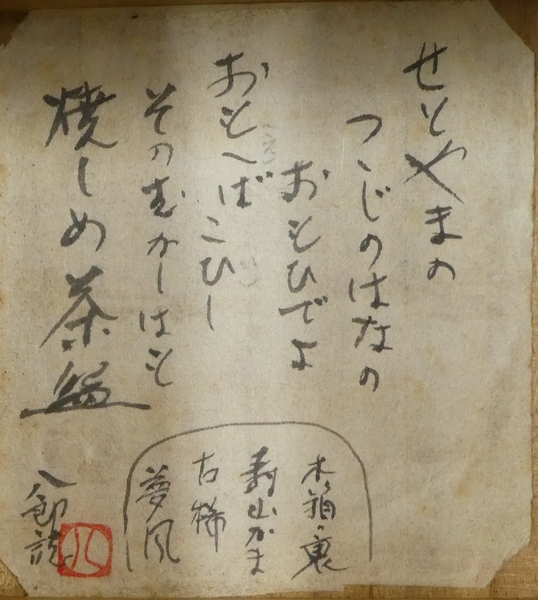 せとやまの
つゝじのはなの
おもひでよ
おもへばこひし
そのむかしはも
焼しめ茶盌
木箱裏
寿山かま
古稀
夢風
八郎誌
八